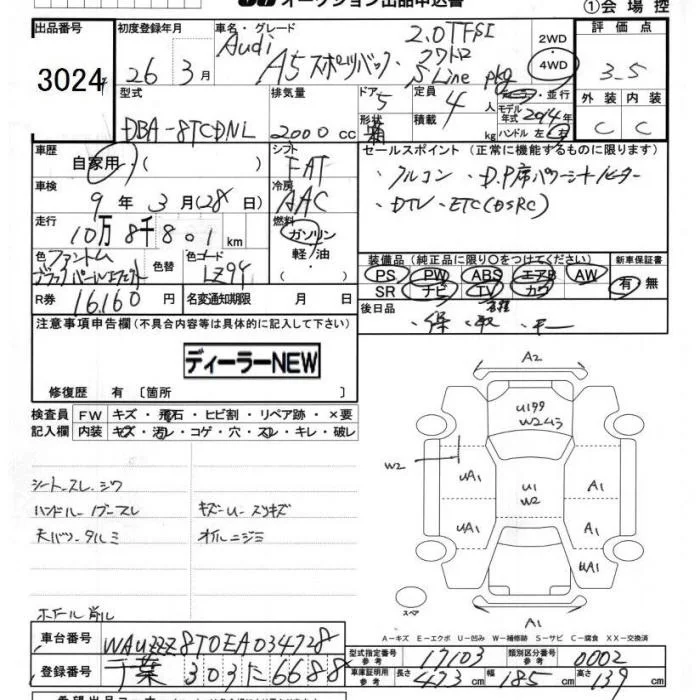 オークション出品申込書
①会場控
出品番号
3024
初度登録年月
26年3月
車名・グレード
Audi A5スポーツバック 2.0TFSI クワトロ S Line pkg
2WD
4WD
評価点
3.5
外装 内装
C C
型式
DBA-8TCDNL
排気量
2000cc
ドア
5
形状
箱
定員
4人
積載
kg
モデル年式 2014年
ハンドル 左 右
車歴
自家用 ( )
シフト
FAT
セールスポイント (正常に機能するものに限ります)
・アルコン ・D.P席パワーシートヒーター
・DTV ・ETC(DSRC)
車検
9年3月(28日)
冷房
AAC
走行
10万8千801km
燃料
ガソリン
軽・油
( )
色
ファントムブラックパールエフェクト
色替
色コード
LZ9Y
装備品 (純正品に限り○をつけてください)
PS PW ABS エアB AW
SR ナビ TV カワ
新車保証書
有・無
R券
16,160円
名変通知期限 月 日
後日品
・保 ・取 ・キー
注意事項申告欄 (不具合内容等は具体的に記入して下さい)
ディーラーNEW
修復歴 有 〔箇所 〕
検査員記入欄
FW キズ・飛石・ヒビ割・リペア跡・×要
内装 キズ・汚レ・コゲ・穴・スレ・キレ・破レ
シートスレ・シワ
ハンドル・ノブスレ
キズ・U・スリキズ
天バリタルミ
オイルニジミ
ホイール削ル
A2
U199
W2ムラ
W2
UA1
U1
W2
A1
UA1
A1
UA1
スペア
A1
A-キズ E-エクボ U-凹み W-補修跡 S-サビ C-腐食 XX-交換済
車台番号
WAUZZZ8T0EA034728
登録番号
千葉 303 に 6688
型式指定番号 参考
17103
類別区分番号 参考
0002
車庫証明用 参考
長さ 473cm 幅 185cm 高さ 139cm